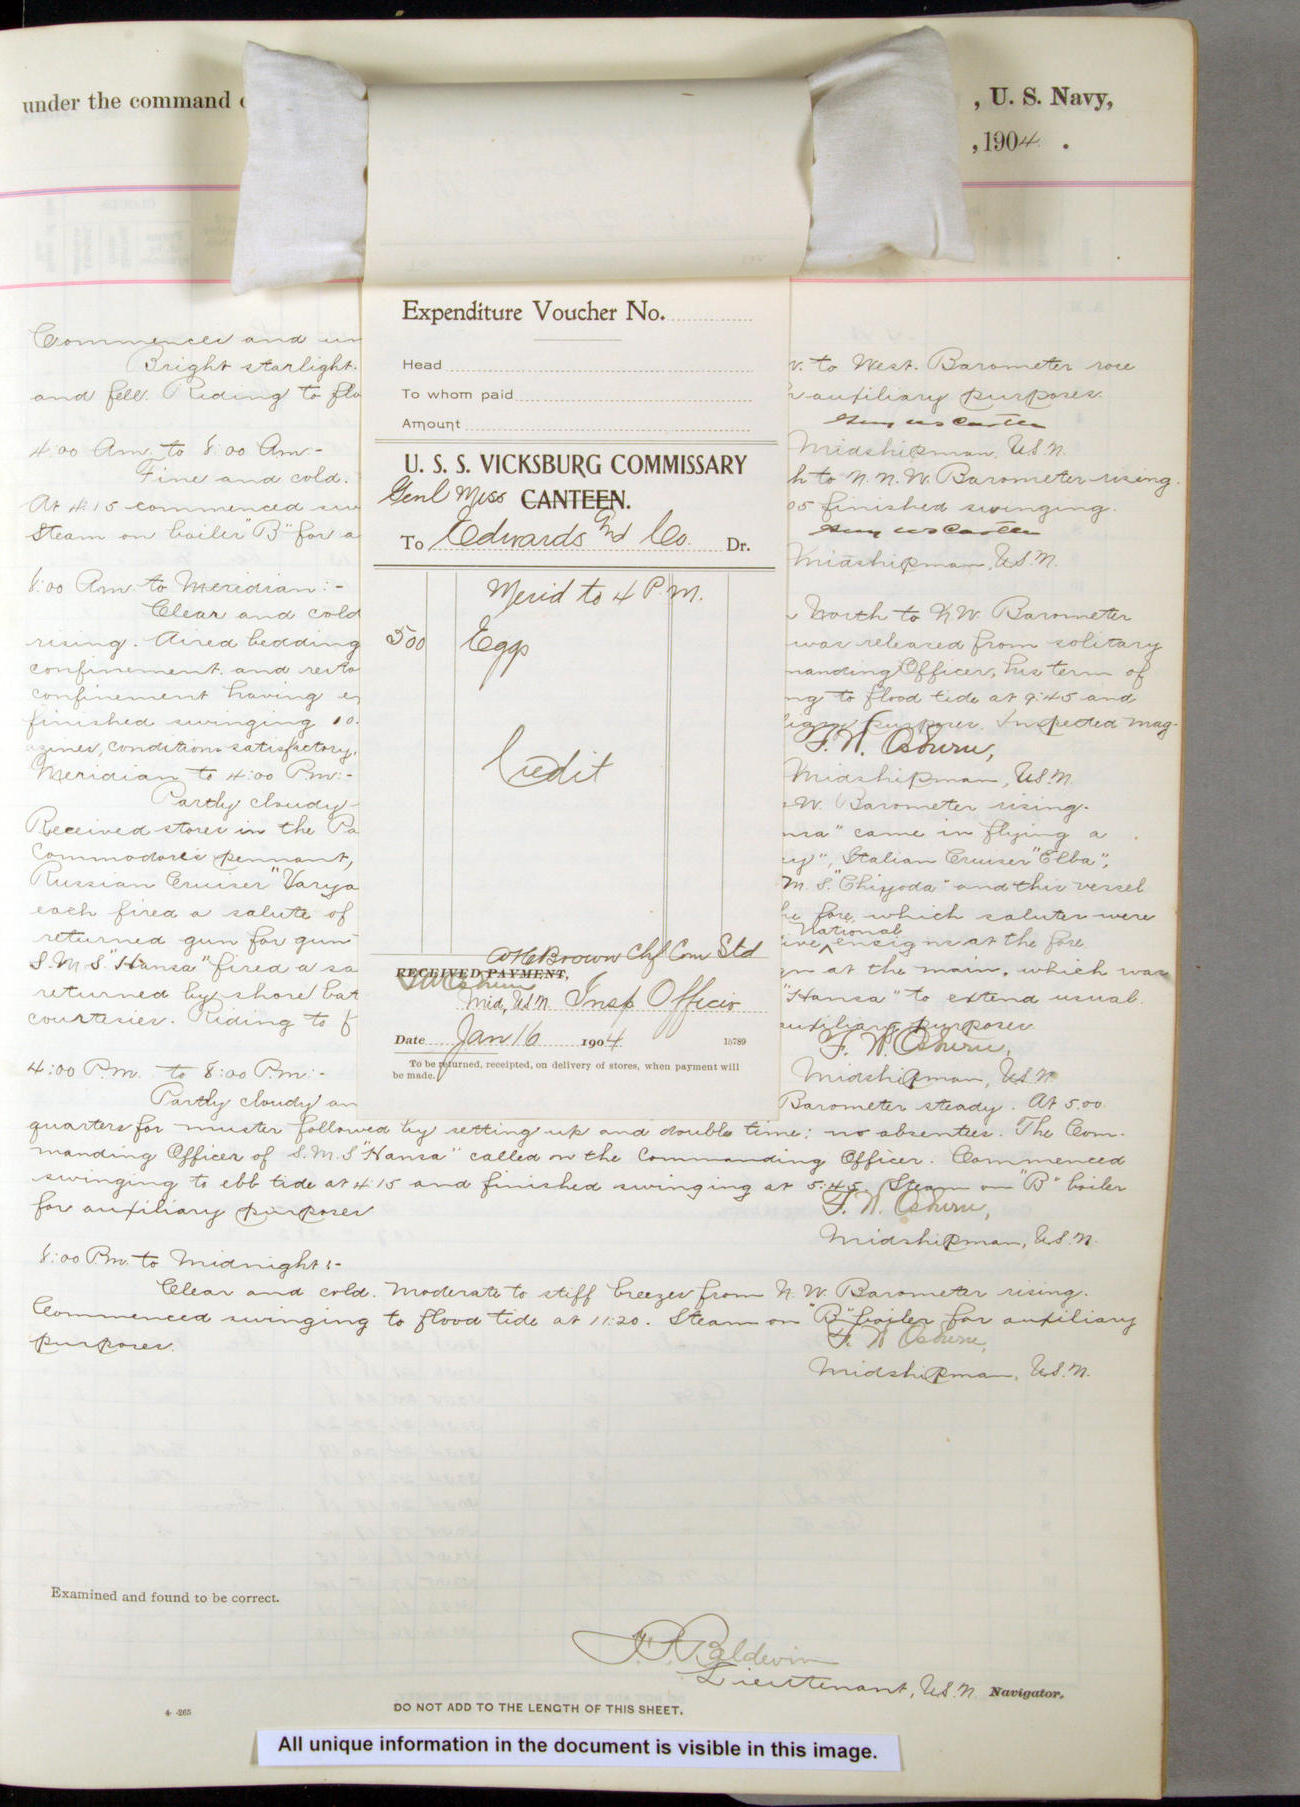 under the command
, U. S. Navy,
, 1904 .
Expenditure Voucher No.
Head
To whom paid
Amount
U. S. S. VICKSBURG COMMISSARY
Genl Mess CANTEEN.
To Edwards and Co. Dr.
Merid to 4 P.M.
500 Eggs
Credit
Brown Chf Com Std
RECEIVED PAYMENT,
Mid, U.S.N. Insp Officer
Date Jan 16 1904
15789
To be returned, receipted, on delivery of stores, when payment will
be made.
Commences and
Bright starlight.
to West. Barometer rose
and fell. Riding to
auxiliary purposes.
Midshipman, U.S.N.
4:00 Am. to 8:00 Am:-
Fine and cold.
to N.N.W. Barometer rising.
At 4:15 commenced
finished swinging.
Steam on boiler "B" for
Midshipman, U.S.N.
8:00 Am. to Meridian:-
Clear and cold
North to NW Barometer
rising. Aired bedding
was released from solitary
confinement and
Officer, his term of
confinement having
to flood tide at 9:45 and
finished swinging 10.
purposes. Inspected mag-
azines, conditions satisfactory.
F. W. Osburn,
Midshipman, U.S.N.
Meridian to 4:00 Pm:-
Partly cloudy
W. Barometer rising.
Received stores in the
came in flying a
Commodore's pennant,
Italian Cruiser "Elba",
Russian Cruiser
M. S. "Chiyoda" and this vessel
each fired a salute of
fore, which salutes were
returned gun for gun
National
ensigns at the fore
S.M.S. "Hansa" fired a
at the main, which was
returned by shore
"Hansa" to extend usual
courtesies. Riding to
auxiliary purposes
F. W. Osburn,
Midshipman, U.S.N.
4:00 P.m. to 8:00 P.m:-
Partly cloudy
Barometer steady. At 5.00
quarters for muster followed by setting up and double time; no absentees. The Com-
manding Officer of S.M.S "Hansa" called on the Commanding Officer. Commenced
swinging to ebb tide at 4:15 and finished swinging at 5:45. Steam on "B" boiler
for auxiliary purposes
F. W. Osburn,
Midshipman, U.S.N.
8:00 P.m. to Midnight:-
Clear and cold. Moderate to stiff breezes from N.W. Barometer rising.
Commenced swinging to flood tide at 11:20. Steam on "B" boiler for auxiliary
purposes.
F. W. Osburn,
Midshipman, U.S.N.
Examined and found to be correct.
Baldwin
Lieutenant, U.S.N. Navigator.
4-265
DO NOT ADD TO THE LENGTH OF THIS SHEET.
All unique information in the document is visible in this image.